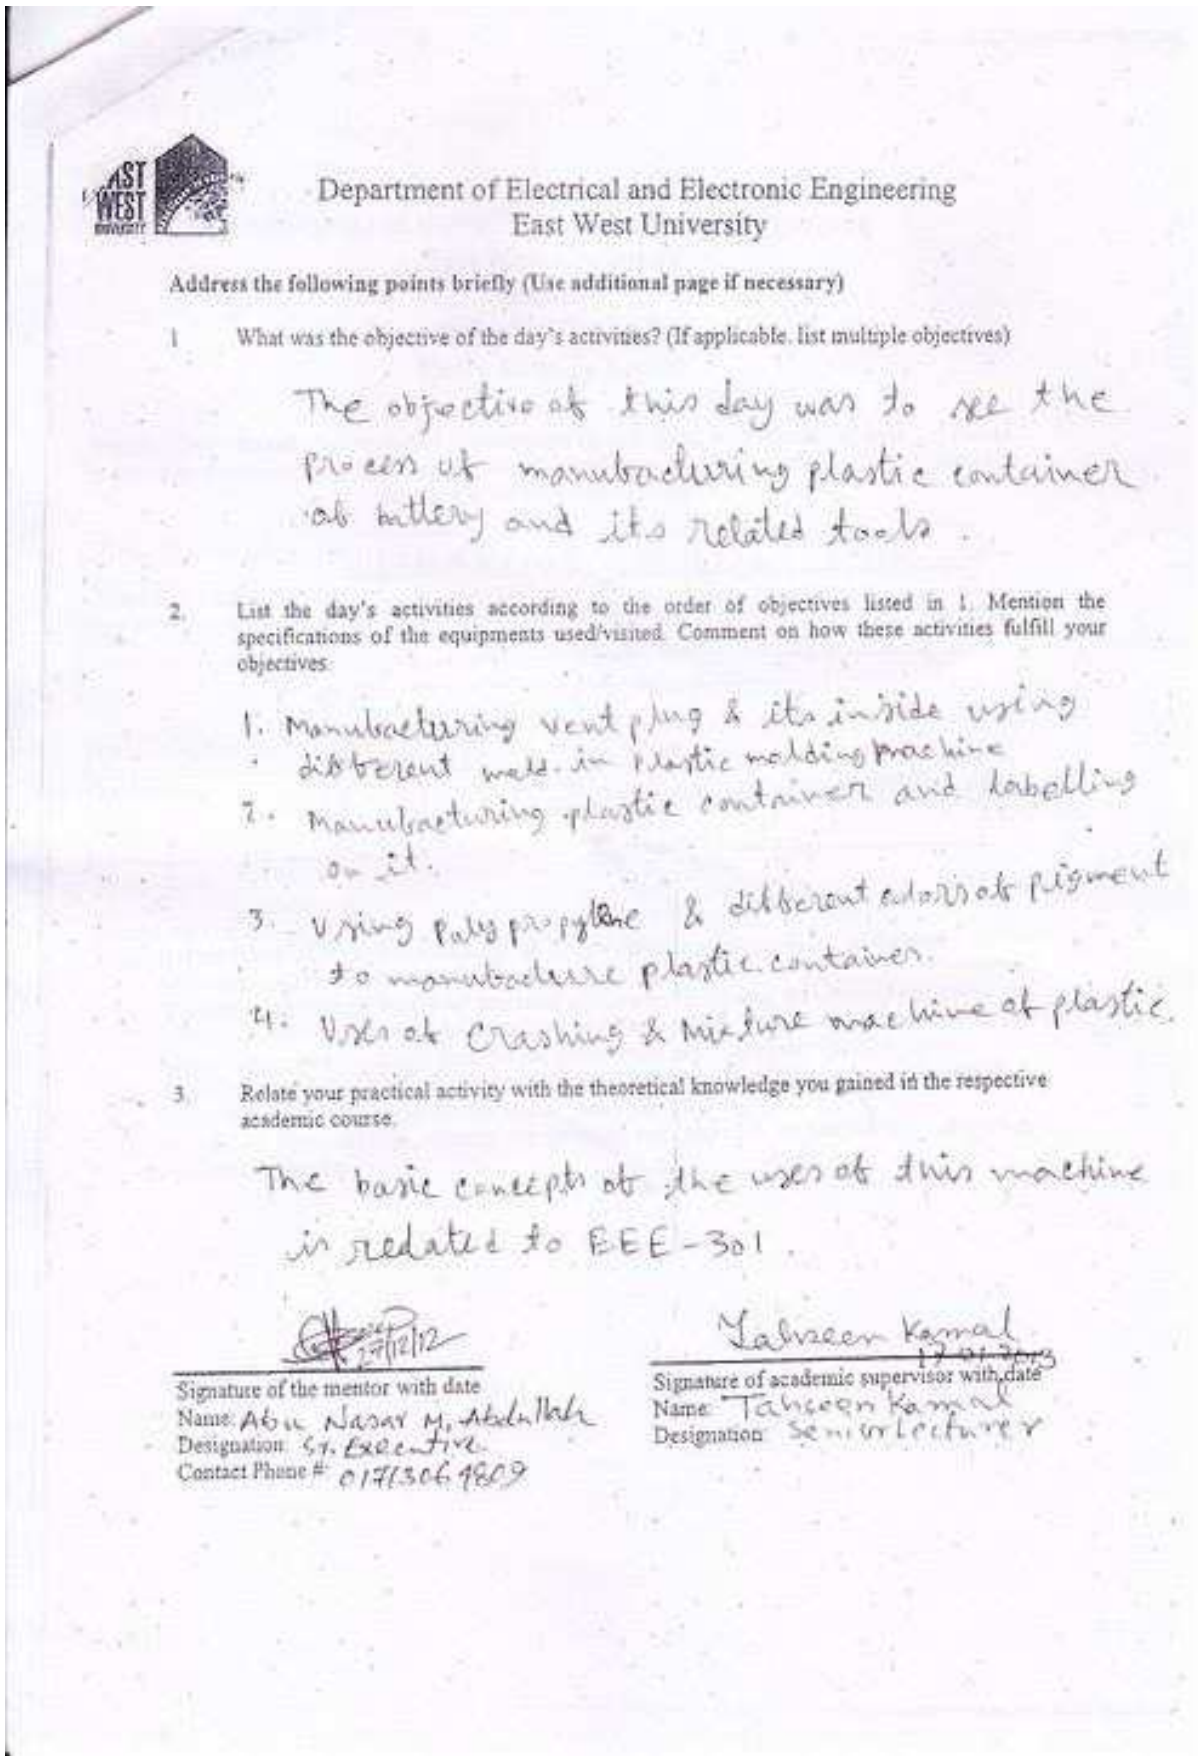 EAST
WEST
UNIVERSITY
Department of Electrical and Electronic Engineering
East West University
Address the following points briefly (Use additional page if necessary)
1 What was the objective of the day's activities? (If applicable, list multiple objectives)
The objective of this day was to see the
process of manufacturing plastic container
of battery and its related tools.
2. List the day's activities according to the order of objectives listed in 1. Mention the
specifications of the equipments used/visited. Comment on how these activities fulfill your
objectives.
1. Manufacturing vent plug & its inside using
different mold in plastic molding machine
2. Manufacturing plastic container and labelling
on it.
3. Using polypropylene & different colors of pigment
to manufacture plastic container.
4. Uses of Crashing & Mixture machine of plastic.
3. Relate your practical activity with the theoretical knowledge you gained in the respective
academic course.
The basic concepts of the uses of this machine
is related to EEE-301.
27/12/12
Tahseen Kamal
17-01-2013
Signature of the mentor with date
Name: Abu Nasar M. Abdullah
Designation: Sr. Executive
Contact Phone #: 01713064809
Signature of academic supervisor with date
Name: Tahseen Kamal
Designation: Senior Lecturer